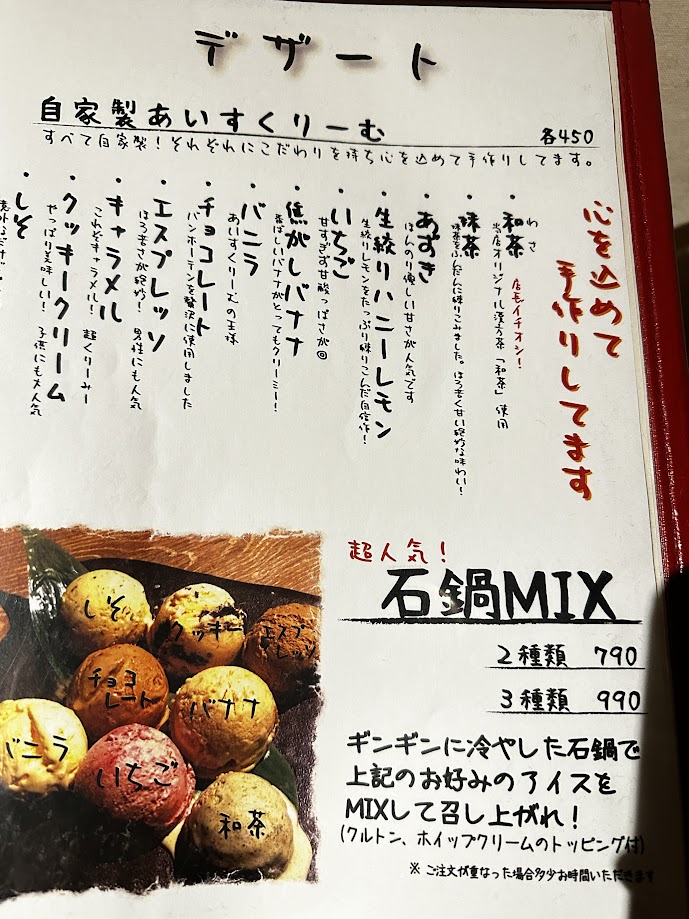 デザート
自家製あいすくりーむ 各450
すべて自家製！それぞれにこだわりを持ち心を込めて手作りしてます。
心を込めて
手作りしてます
・和茶 店長イチオシ！
わさ
当店オリジナル漢方茶「和茶」使用
・抹茶
抹茶をふんだんに練りこみました。ほろ苦く甘い絶妙な味わい！
・あずき
ほんのり優しい甘さが人気です
・生絞りハニーレモン
生絞りレモンをたっぷり練りこんだ自信作！
・いちご
甘すぎず甘酸っぱさが◎
・焦がしバナナ
香ばしいバナナがとってもクリーミー！
・バニラ
あいすくりーむの王様
・チョコレート
バンホーテンを贅沢に使用しました
・エスプレッソ
ほろ苦さが絶妙！ 男性にも人気
・キャラメル
これぞキャラメル！ 超くりーみー
・クッキークリーム
やっぱり美味しい！ 子供にも大人気
・しそ
超人気！
石鍋MIX
2種類 790
3種類 990
ギンギンに冷やした石鍋で
上記のお好みのアイスを
MIXして召し上がれ！
(クルトン、ホイップクリームのトッピング付)
※ ご注文が重なった場合多少お時間いただきます
しそ
クッキー
エスプ
レッソ
チョコ
レート
バナナ
バニラ
いちご
和茶